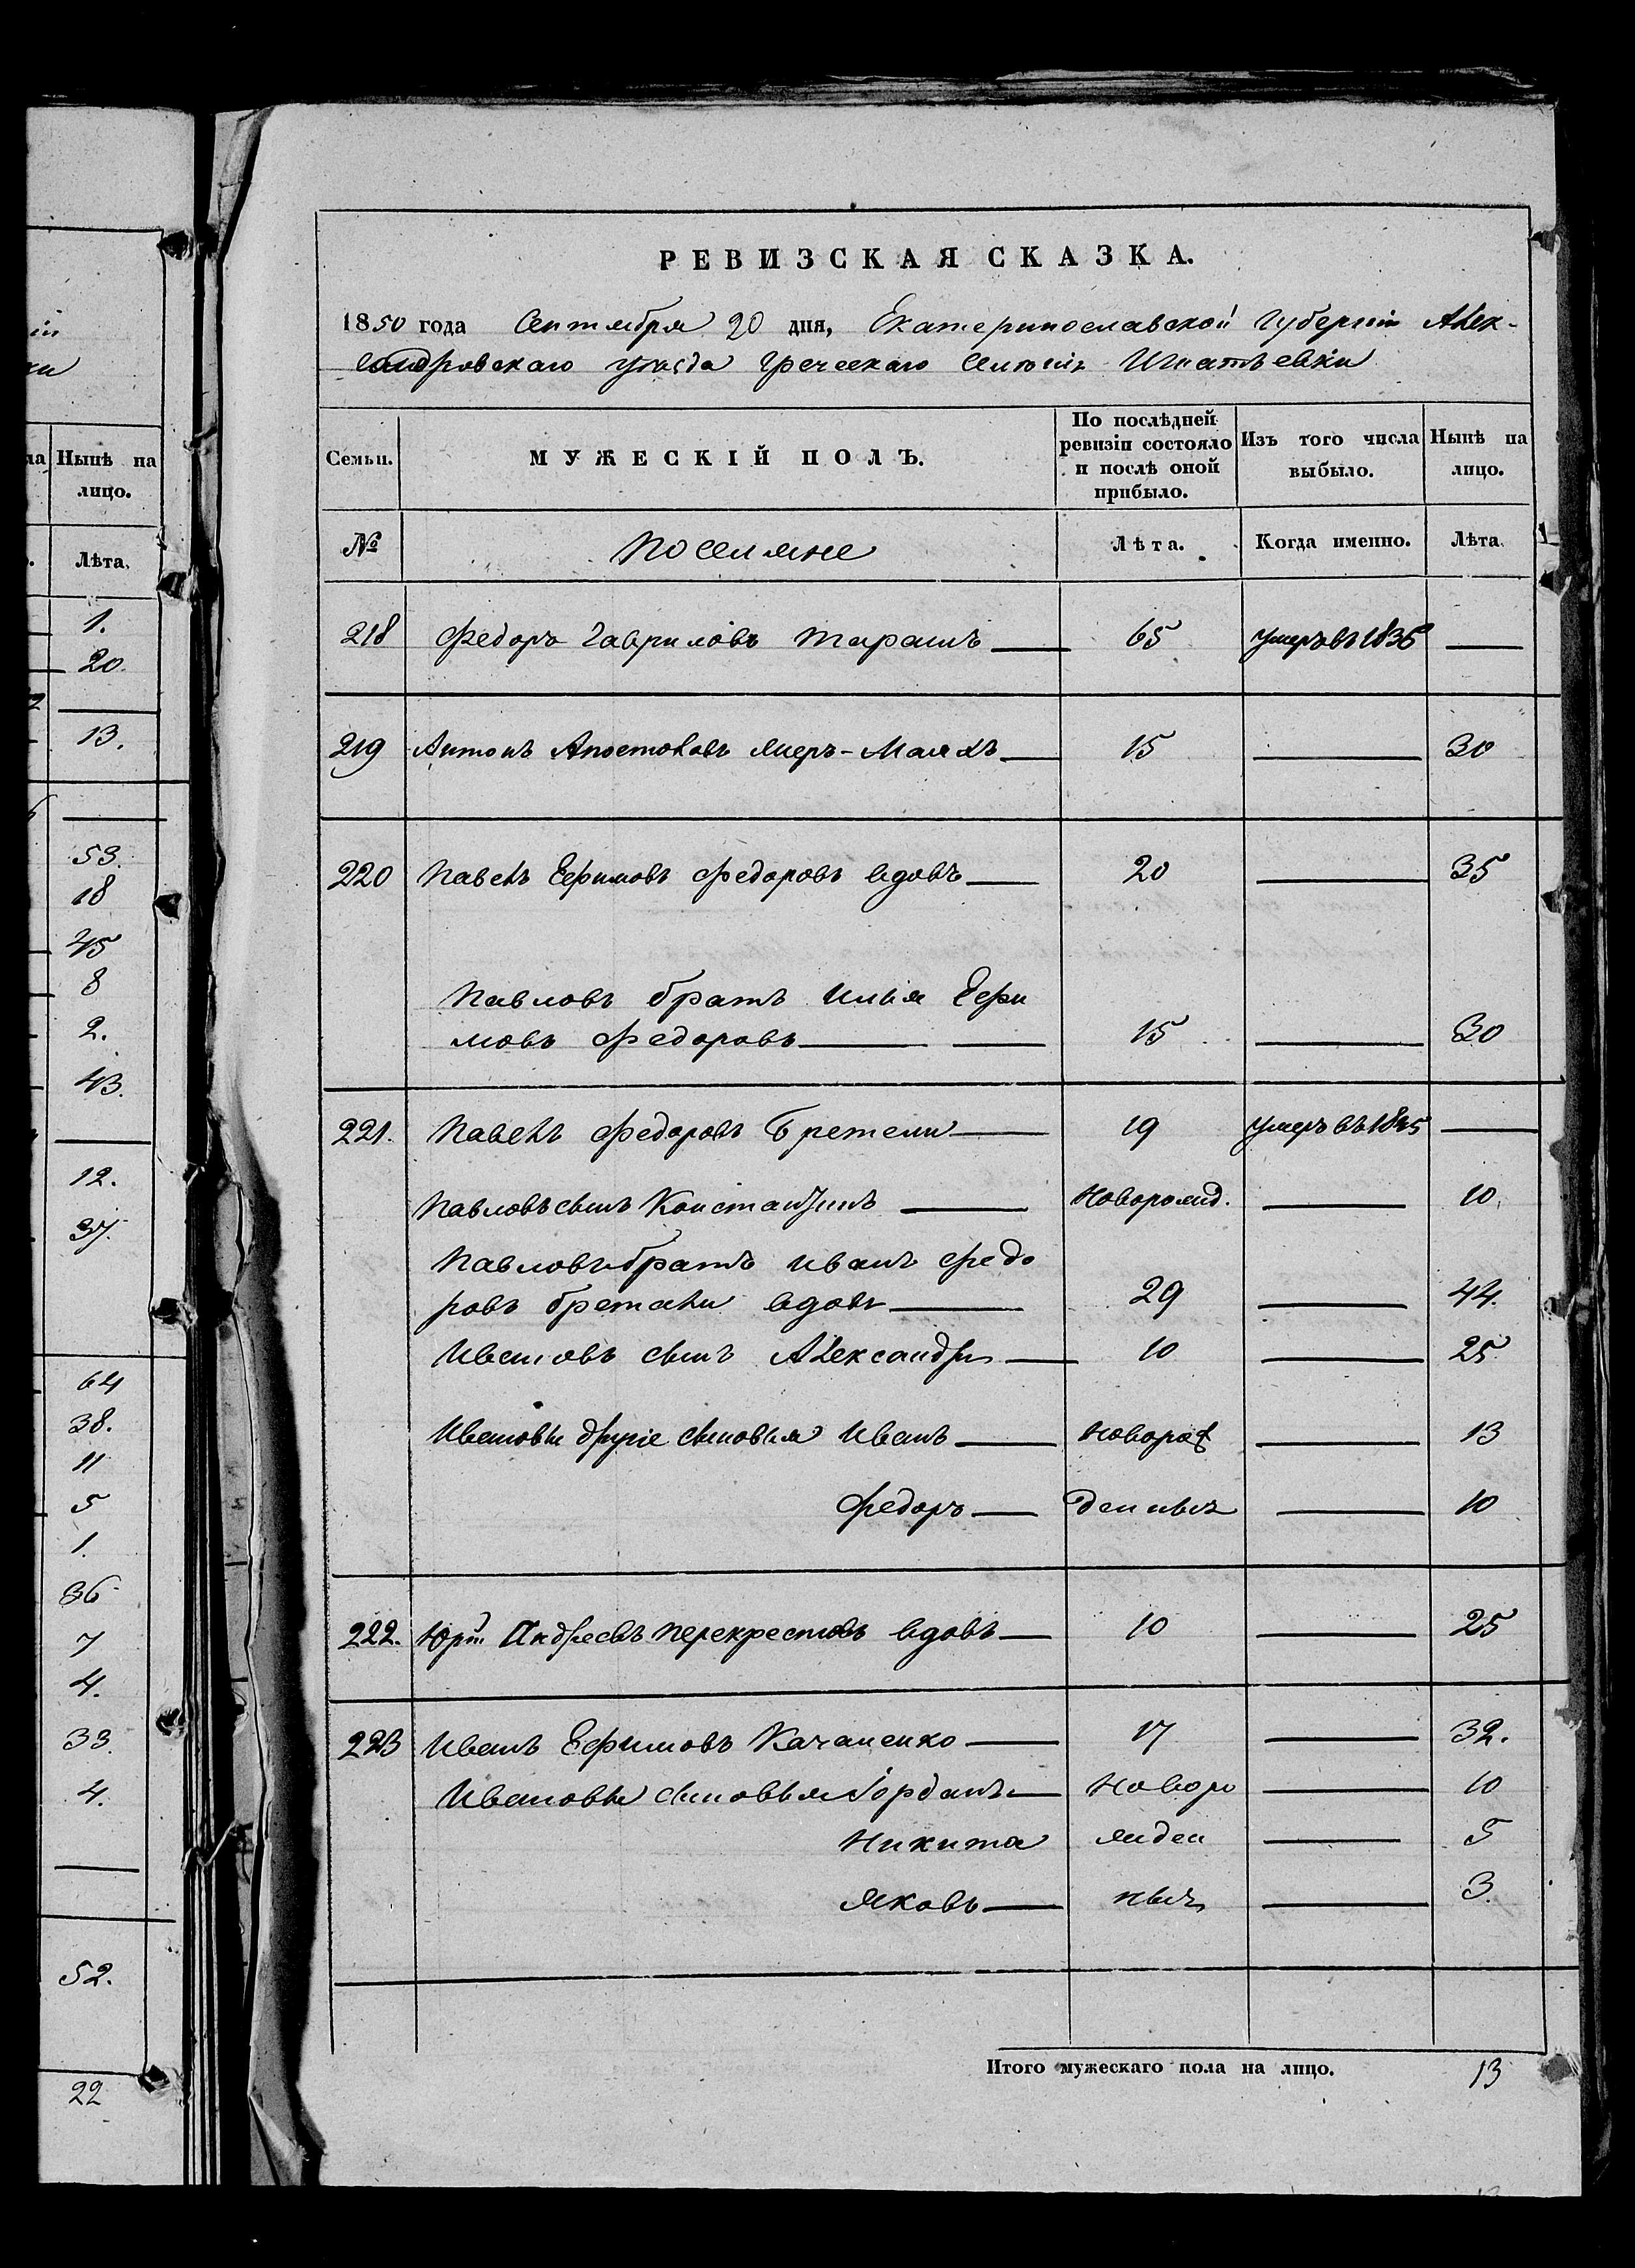 РЕВИЗСКАЯ СКАЗКА.
1850 года Сентября 20 дня, Екатеринославской Губерніи Алек-
сандровскаго уѣзда Греческаго Селенія Игнатьевки
Семьи.
МУЖЕСКІЙ ПОЛЪ.
По послѣдней ревизіи состояло и послѣ оной прибыло.
Изъ того числа выбыло.
Нынѣ на лицо.
№
Поселяне
Лѣта.
Когда именно.
Лѣта.
218 Федоръ Гавриловъ 65 умеръ въ 1836
219 Антонъ Апостоловъ 15 30
220 Павелъ Ефимовъ Федоровъ вдовъ 20 35
Павловъ братъ Илья Ефи
мовъ Федоровъ 15 30
221. Павелъ Федоровъ 19 умеръ въ 1845
Павловъ сынъ Константинъ Новорожд. 10.
Павловъ братъ Иванъ Федо
ровъ вдовъ 29 44.
Ивановъ сынъ Александръ 10 25
Ивановы другіе сыновья Иванъ Новорож 13
Федоръ денныхъ 10
222. Юрій Андреевъ Перекрестовъ вдовъ 10 25
223 Иванъ Ефимовъ Качаненко 17 32.
Ивановы сыновья Іорданъ Новоро 10
Никита жден 5
Яковъ ныхъ 3.
Итого мужескаго пола на лицо. 13
Нынѣ на
лицо.
Лѣта.
1.
20.
13.
53.
18
45
8
2.
43.
12.
37.
64
38.
11
5
1.
36
7
4.
33.
4.
52.
22